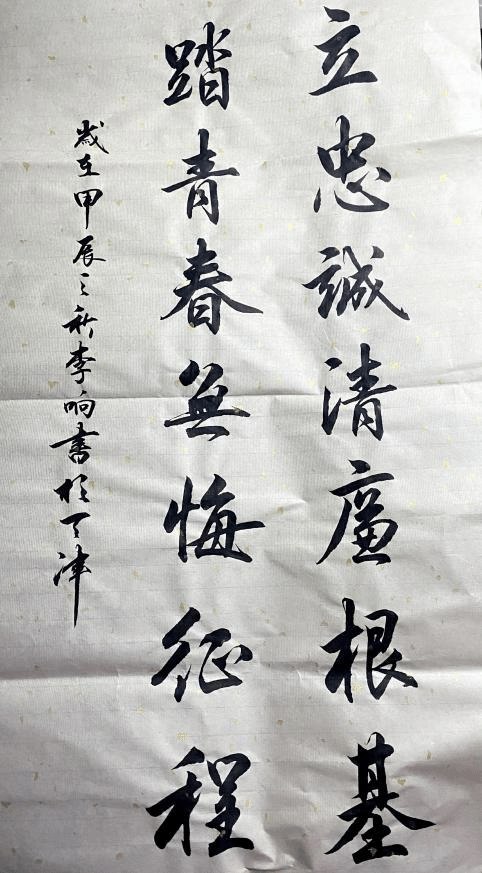 立忠誠清廉根基
踏青春無悔征程
歲在甲辰之秋李响書於天津